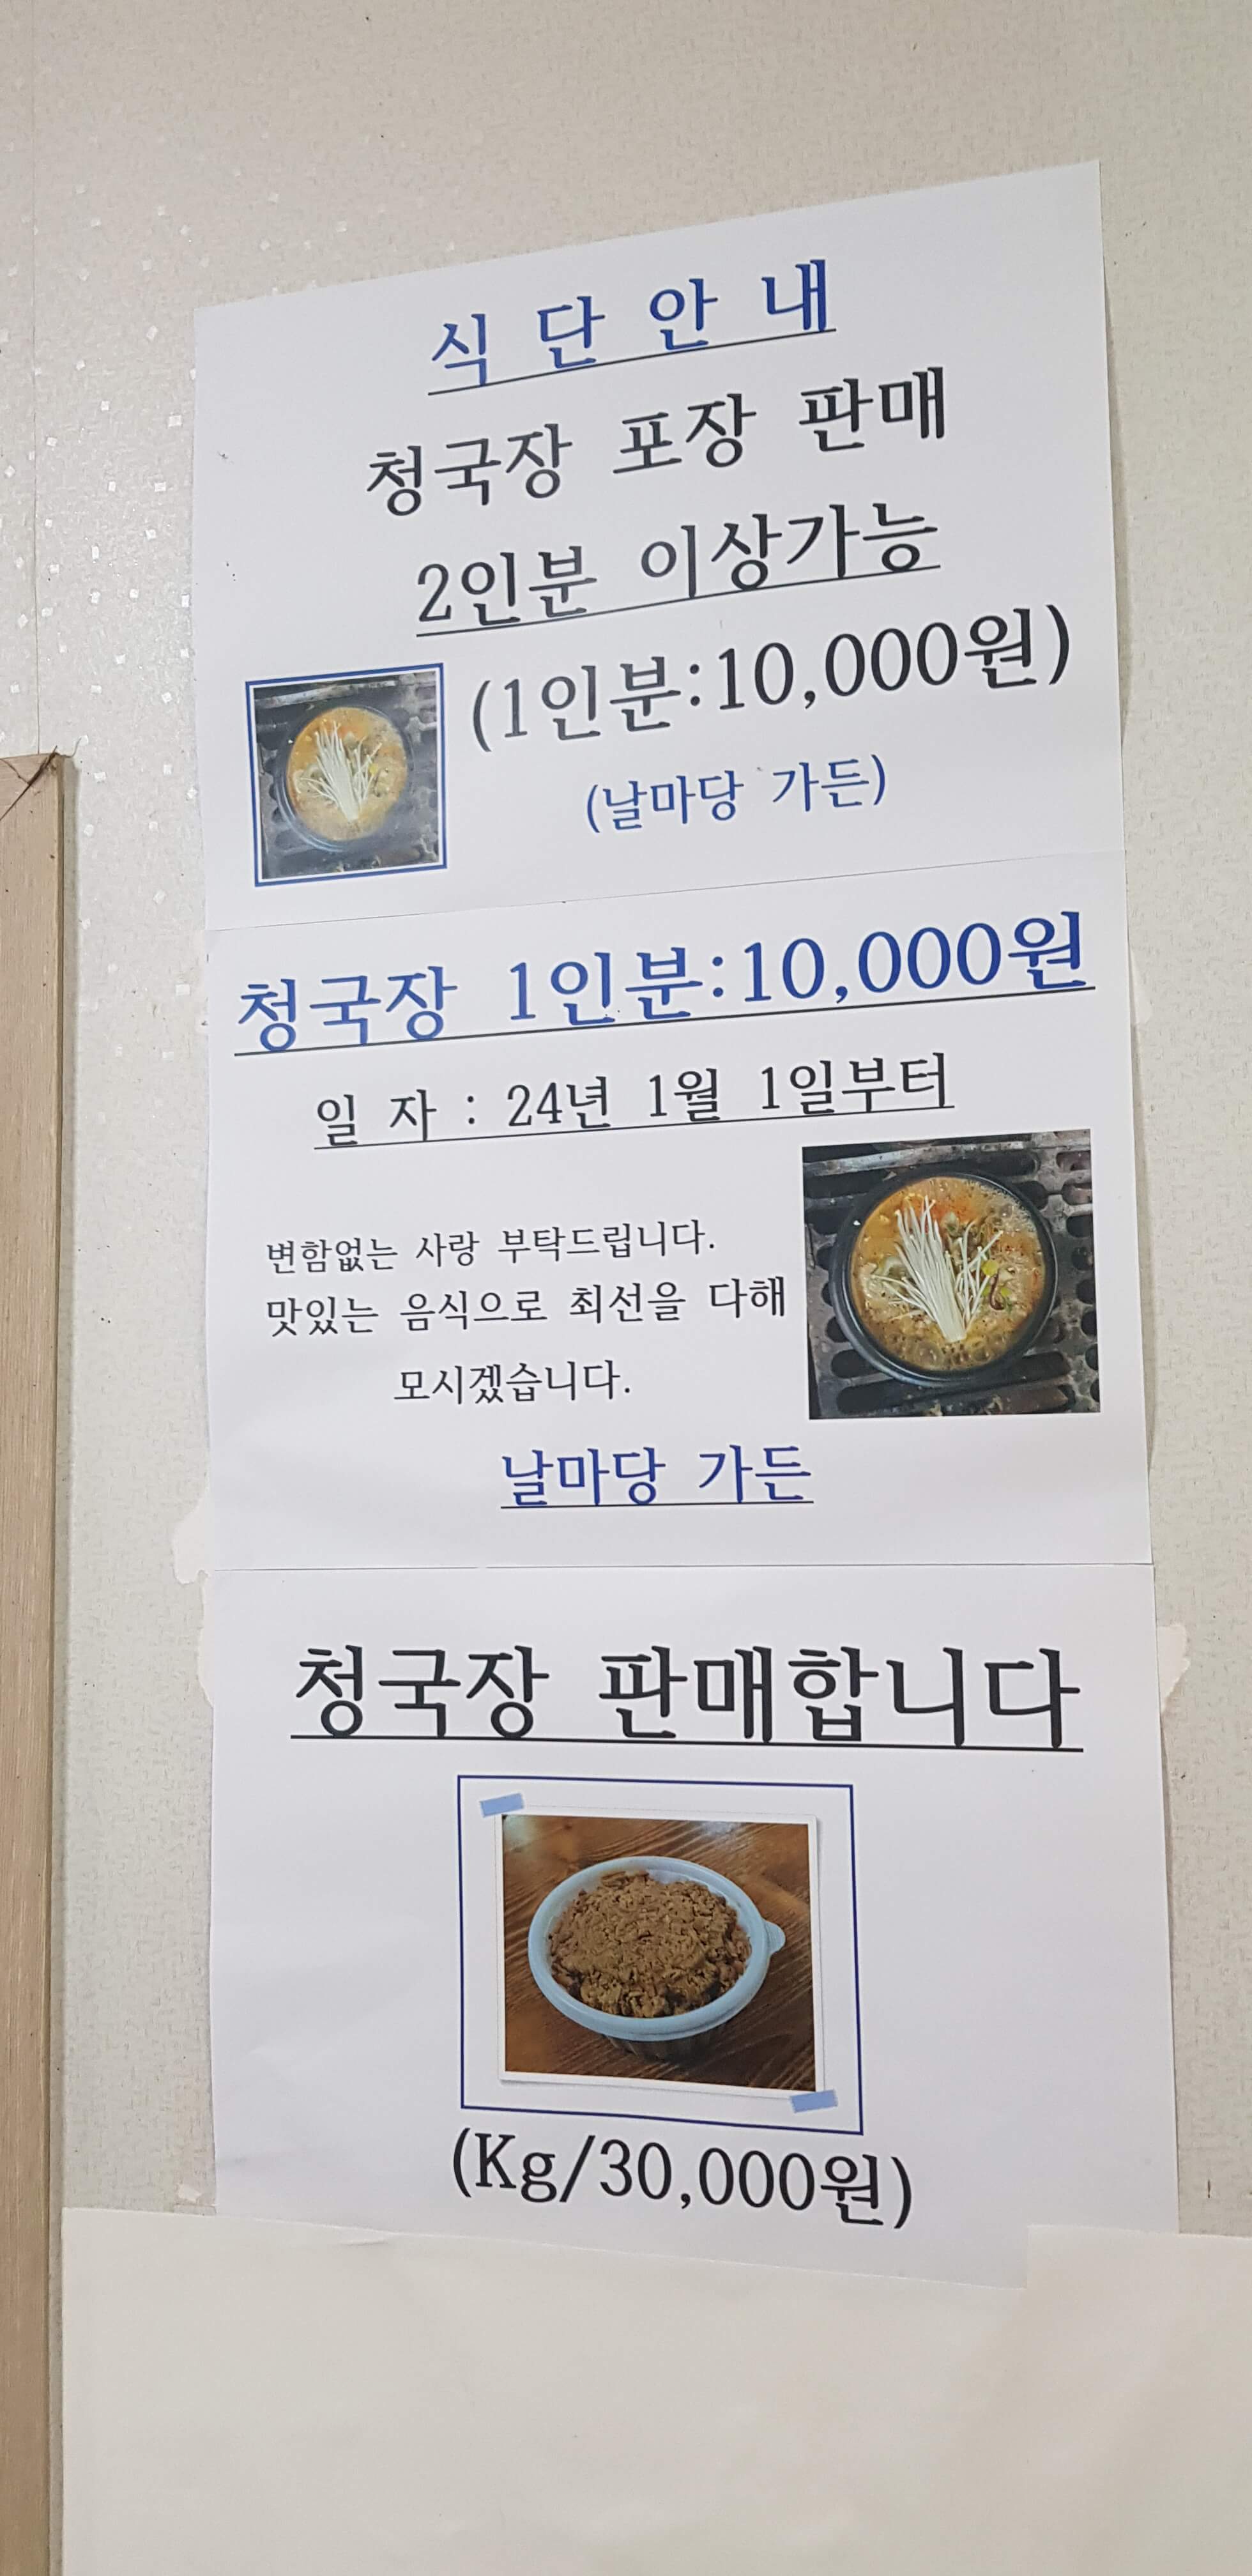 식 단 안 내
청국장 포장 판매
2인분 이상가능
(1인분:10,000원)
(날마당 가든)
청국장 1인분:10,000원
일 자 : 24년 1월 1일부터
변함없는 사랑 부탁드립니다.
맛있는 음식으로 최선을 다해
모시겠습니다.
날마당 가든
청국장 판매합니다
(Kg/30,000원)